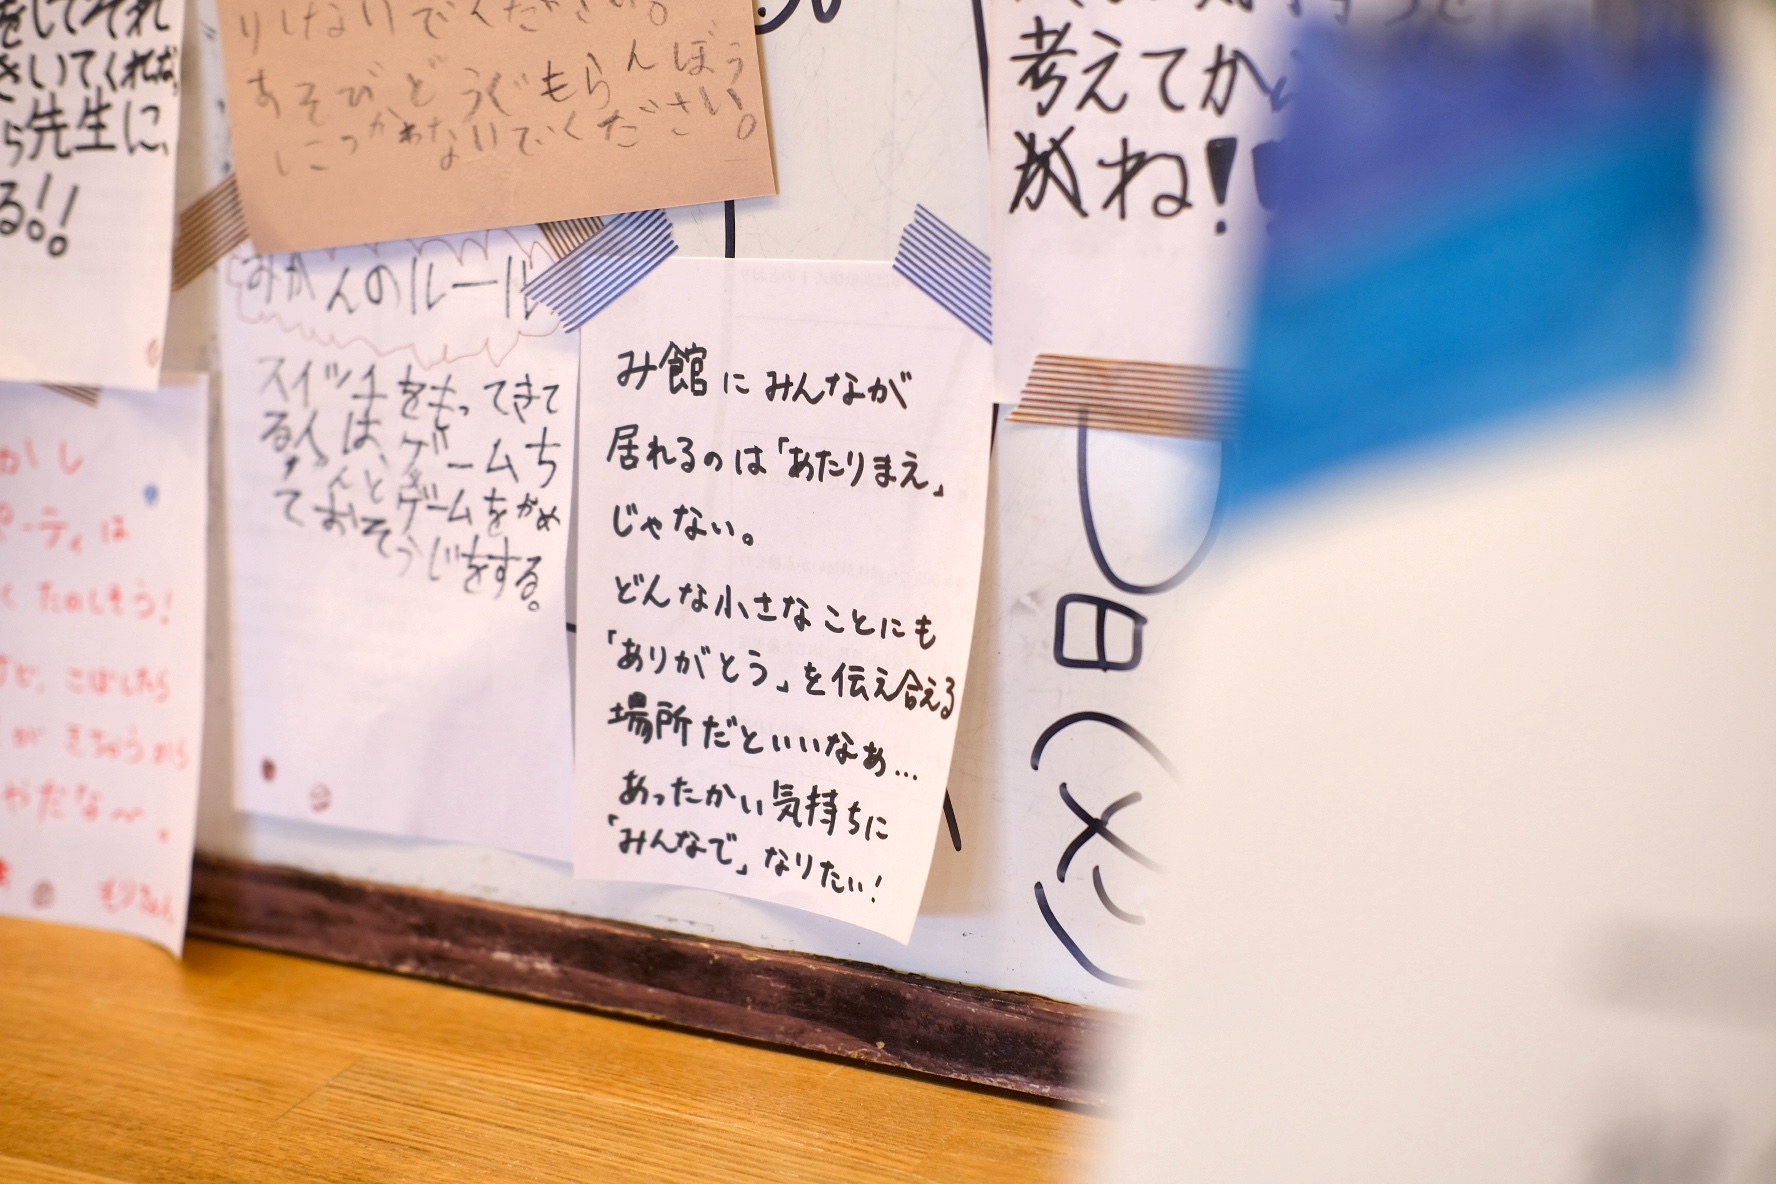 をしてそれ
きいてくれた
ら先生に、
る!!
りしないでください。
あそびどうぐもらんぼう
につかわないでください。
みかんのルール
スイッチをもってきて
る人は、ゲームち
ゃんとゲームをかめ
ておそうじをする。
み館にみんなが
居れるのは「あたりまえ」
じゃない。
どんな小さなことにも
「ありがとう」を伝え合える
場所だといいなぁ…
あったかい気持ちに
「みんなで」なりたい!
考えてか
ね!
日(火)
かし
パーティは
たのしもう!
こぼしたら
が きちゅうから
やだな〜。